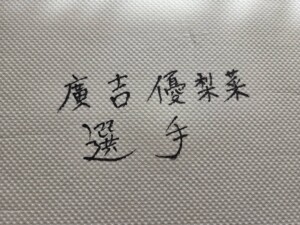 廣吉優梨菜
選手